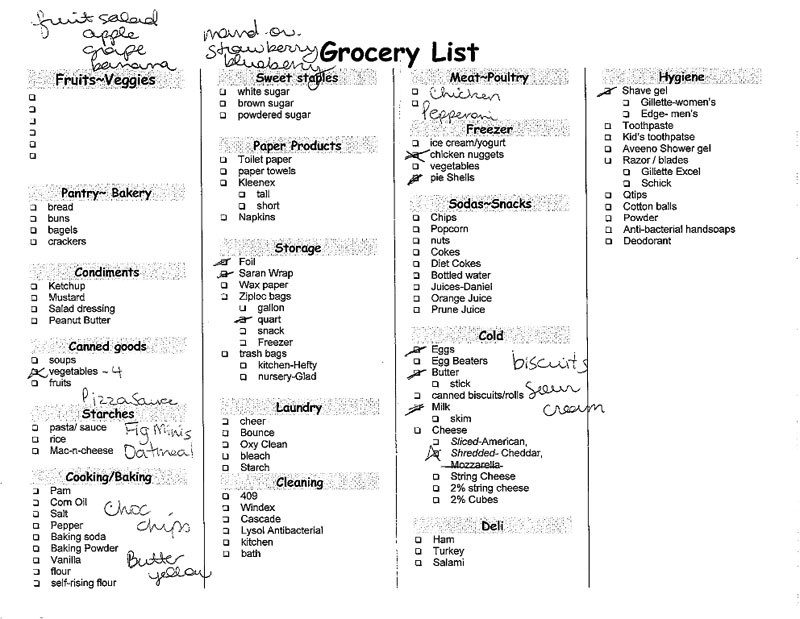 fruit salad
apple
grape
banana
mand. or.
strawberry
blueberry
Grocery List
Fruits~Veggies
Pantry~ Bakery
bread
buns
bagels
crackers
Condiments
Ketchup
Mustard
Salad dressing
Peanut Butter
Canned goods
soups
vegetables ~ 4
fruits
Pizza Sauce
Starches
pasta/ sauce
rice
Mac-n-cheese
Fig Minis
Oatmeal
Cooking/Baking
Pam
Corn Oil
Salt
Pepper
Baking soda
Baking Powder
Vanilla
flour
self-rising flour
Choc
chips
Butter
yellow
Sweet staples
white sugar
brown sugar
powdered sugar
Paper Products
Toilet paper
paper towels
Kleenex
tall
short
Napkins
Storage
Foil
Saran Wrap
Wax paper
Ziploc bags
gallon
quart
snack
Freezer
trash bags
kitchen-Hefty
nursery-Glad
Laundry
cheer
Bounce
Oxy Clean
bleach
Starch
Cleaning
409
Windex
Cascade
Lysol Antibacterial
kitchen
bath
Meat~Poultry
Chicken
Pepperoni
Freezer
ice cream/yogurt
chicken nuggets
vegetables
pie Shells
Sodas~Snacks
Chips
Popcorn
nuts
Cokes
Diet Cokes
Bottled water
Juices-Daniel
Orange Juice
Prune Juice
Cold
Eggs
Egg Beaters
Butter
stick
canned biscuits/rolls
Milk
skim
Cheese
Sliced-American,
Shredded- Cheddar,
Mozzarella
String Cheese
2% string cheese
2% Cubes
biscuits
Sour
cream
Deli
Ham
Turkey
Salami
Hygiene
Shave gel
Gillette-women's
Edge- men's
Toothpaste
Kid's toothpatse
Aveeno Shower gel
Razor / blades
Gillette Excel
Schick
Qtips
Cotton balls
Powder
Anti-bacterial handsoaps
Deodorant